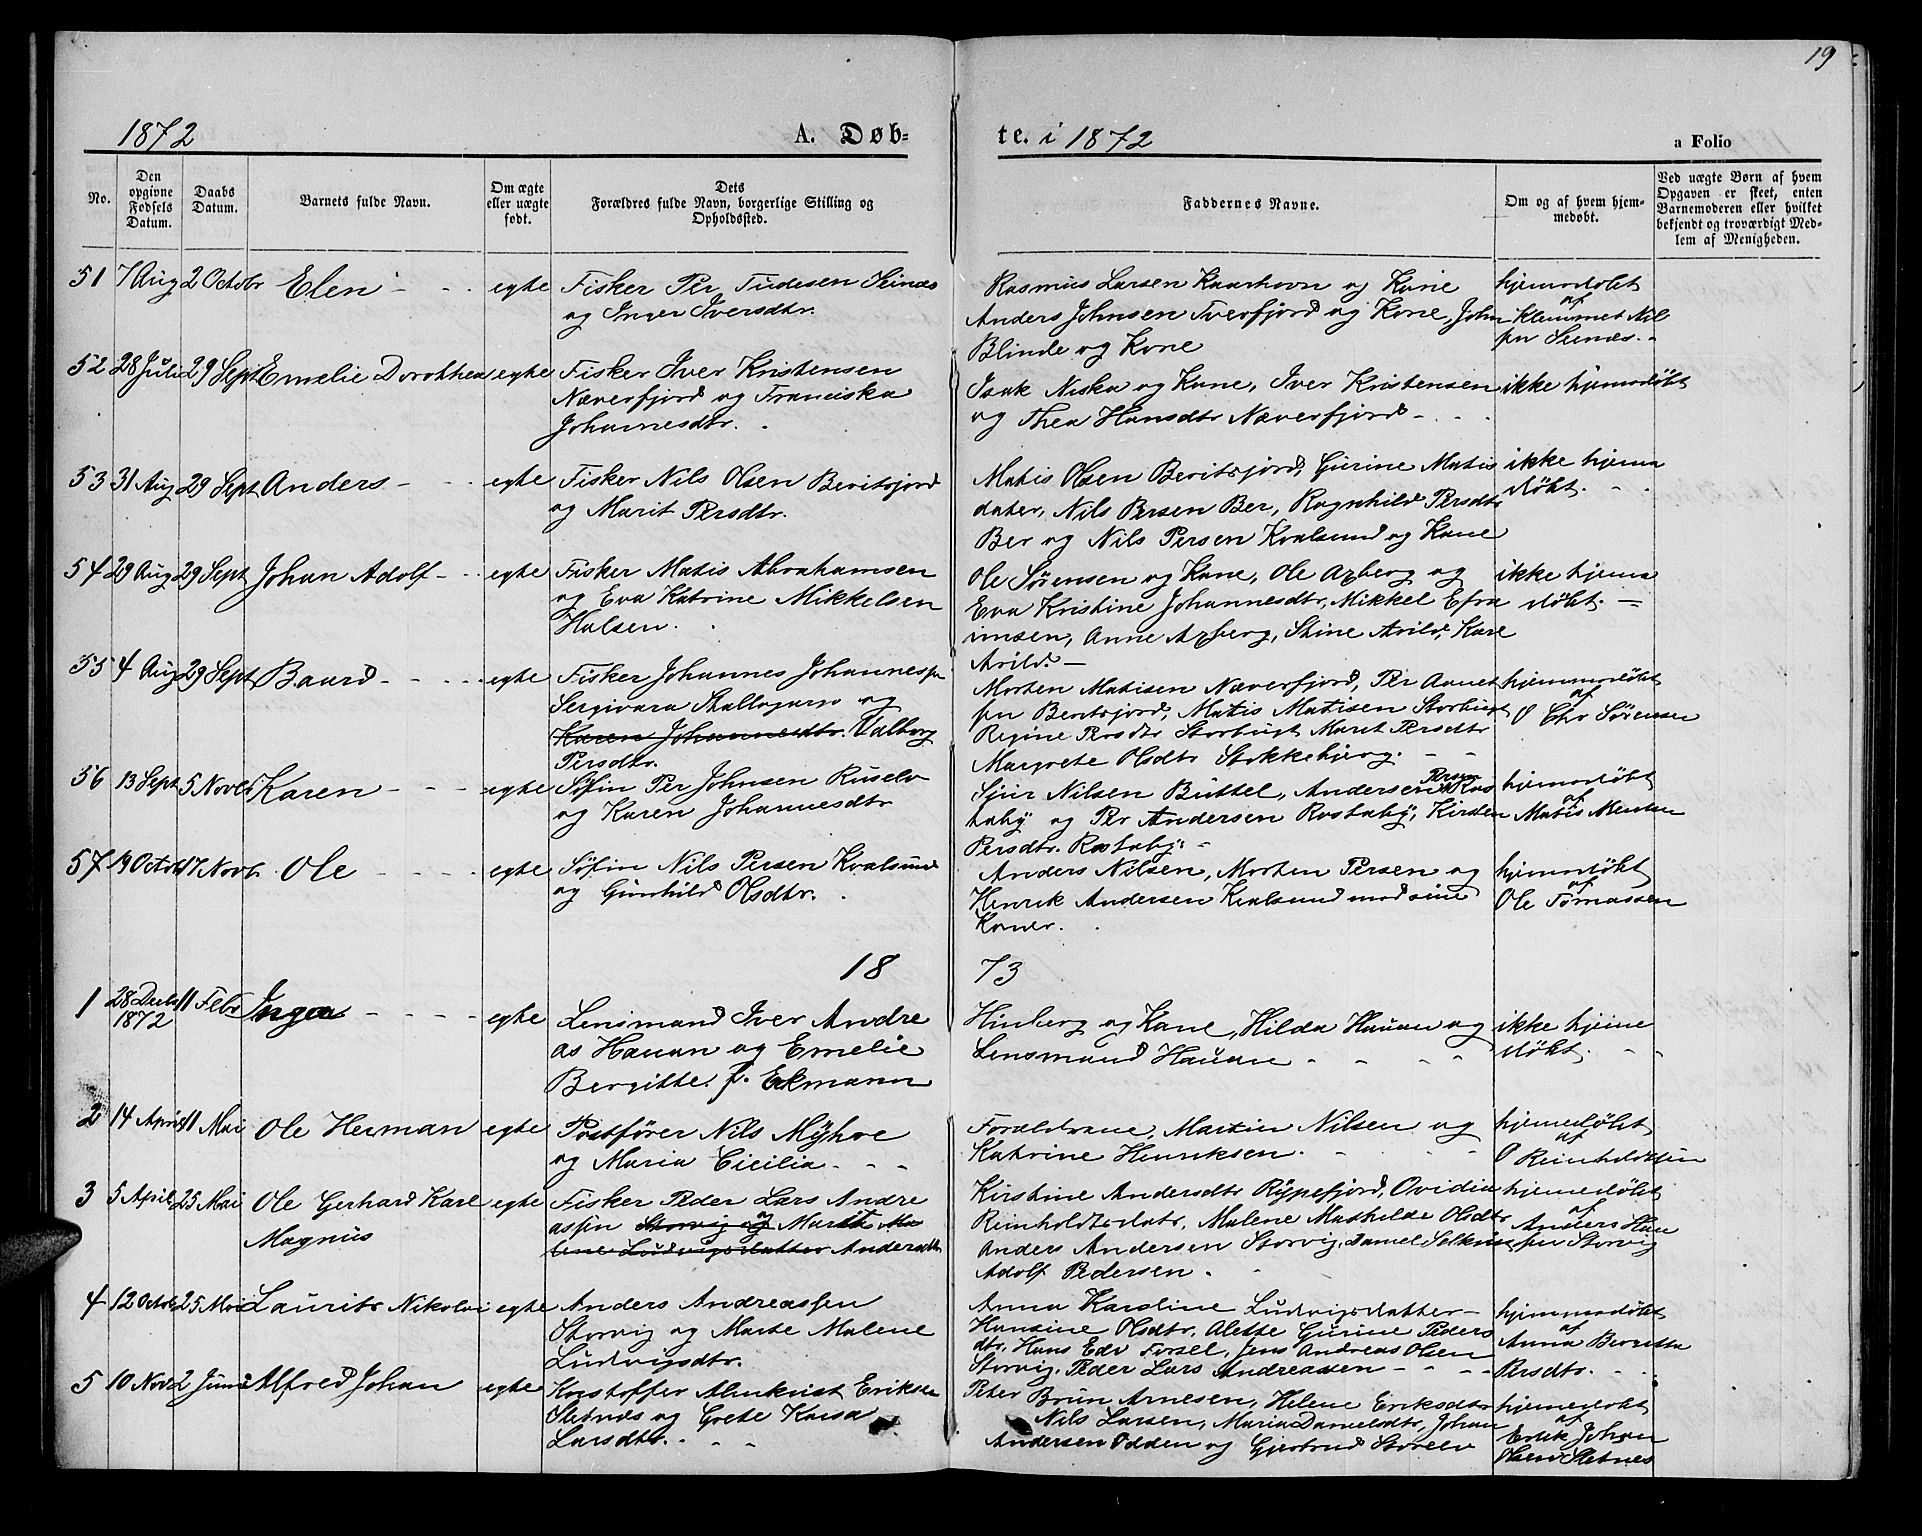 19
1872 A. Døb-
te. i 1872 a Folio
No.
Den opgivne Fødsels Datum.
Daabs Datum.
Barnets fulde Navn.
Om ægte eller uægte født.
Dets
Forældres fulde Navn, borgerlige Stilling og
Opholdssted.
Faddernes Navne.
Om og af hvem hjem-
medøbt.
Ved uægte Børn af hvem
Opgaven er skeet, enten
Barnemoderen eller hvilket
bekjendt og troværdigt Med-
lem af Menigheden.
51 7 Aug 2 Octobr Elen egte Fisker Per Tudesen Seinæs
og Inger Iversdtr.
Rasmus Larsen Kaarhavn og Kone
Anders Johnsen Tverfjord og Kone, John
Blinde og Kone
hjemmedøbt
af
Klemmet Nil
sen Seinæs.
52 28 Juli 29 Sept Emelie Dorothea egte Fisker Iver Kristensen
Næverfjord og Franciska
Johannesdtr.
Isak Niska og Kone, Iver Kristensen
og Thea Hansdtr Næverfjord
ikke hjemmedøbt
53 31 Aug 29 Sept Anders egte Fisker Nils Olsen Beritsjord
og Marit Persdtr.
Matis Olsen Beritsjord, Gurine Matis
dater, Nils Persen Ber, Ragnhild Persdtr
Ber og Nils Persen Kvalsund og Kone
ikke hjema
døbt.
54 29 Aug 29 Sept Johan Adolf egte Fisker Matis Abrahamsen
og Eva Katrine Mikkelsen
Halsen.
Ole Sørensen og Kone, Ole Azberg og
Eva Kristine Johannesdtr, Mikkel Efra
imsen, Anne Azberg, Stine Arild, Karl
Arild.
ikke hjema
døbt.
55 4 Aug 29 Sept Baard egte Fisker Johannes Johannessen
Sergivara Stallogarso og
Karen Johannesdtr. Valborg
Persdtr.
Morten Matisen Næverfjord, Per Aanet
sen Beritsjord, Matis Matisen Storbugt
Regine Persdtr Storbugt Marit Persdtr
Margrete Olsdtr Stokkebjerg.
hjemmedøbt
af
O Chr Sørensen
56 13 Sept 5 Novbr Karen egte Søfin Per Johnsen Ruselv
og Karen Johannesdtr
Sjur Nilsen Buttel, Andersen Persen Ros
taby og Per Andersen Rostaby, Kirsten
Persdtr. Rostaby.
hjemmedøbt
af
Matis Mentsen
57 19 Octob 17 Novb. Ole egte Søfin Nils Persen Kvalsund
og Gunhild Olsdtr.
Anders Nilsen, Morten Persen og
Henrik Andersen Kvalsund med sine
Koner.
hjemmedøbt
af
Ole Tomassen
18 73
1 28 Decbr 1872 11 Febr Inga egte Lensmand Iver Andre
as Hauan og Emelie
Bergitte f. Ekmann
Hinberg og Kone, Hilda Hauan og
Lensmand Hauan
ikke hjeme
døbt.
2 14 April 11 Mai Ole Herman egte Postfører Nils Myhre
og Maria Cicilia.
Forældrene, Martin Nilsen og
Katrine Henriksen.
hjemedøbt
af
O Reinholdtsen
3 5 April 25 Mai Ole Gerhard Karl
Magnus
egte Fisker Peder Lars Andre
assen Storvig og Marit Ma
lene Ludvigsdatter Andersdtr
Kirstine Andersdtr Rypefjord, Ovidia
Reinholdtsdatr, Malene Mathilde Olsdtr
Anders Andersen Storvig, Daniel
Adolf Pedersen
hjemedøbt
af
Anders Han
sen Storvig
4 12 Octob 25 Mai Laurits Nikolai egte Anders Andreassen
Storvig og Marte Malene
Ludvigsdtr.
Anna Karoline Ludvigsdatter
Hansine Olsdtr, Alette Gurine Peders
dtr, Hans Edv Forsel, Jens Andreas Olsen
Storvig, Peder Lars Andreassen
hjemmedøbt
af
Anna Beretta
Persdtr.
5 10 Novbr 2 Juni Alfred Johan egte Kristoffer Almkvist Eriksen
Sletnæs og Grete Kaisa
Larsdtr.
Peter Brun Arnesen, Helene Eriksdtr
Nils Larsen, Maria Danielsdtr, Johan
Andersen Odden og Gjertrud Storelv
hjemedøbt
af
Erik Johan
Olsen Sletnes